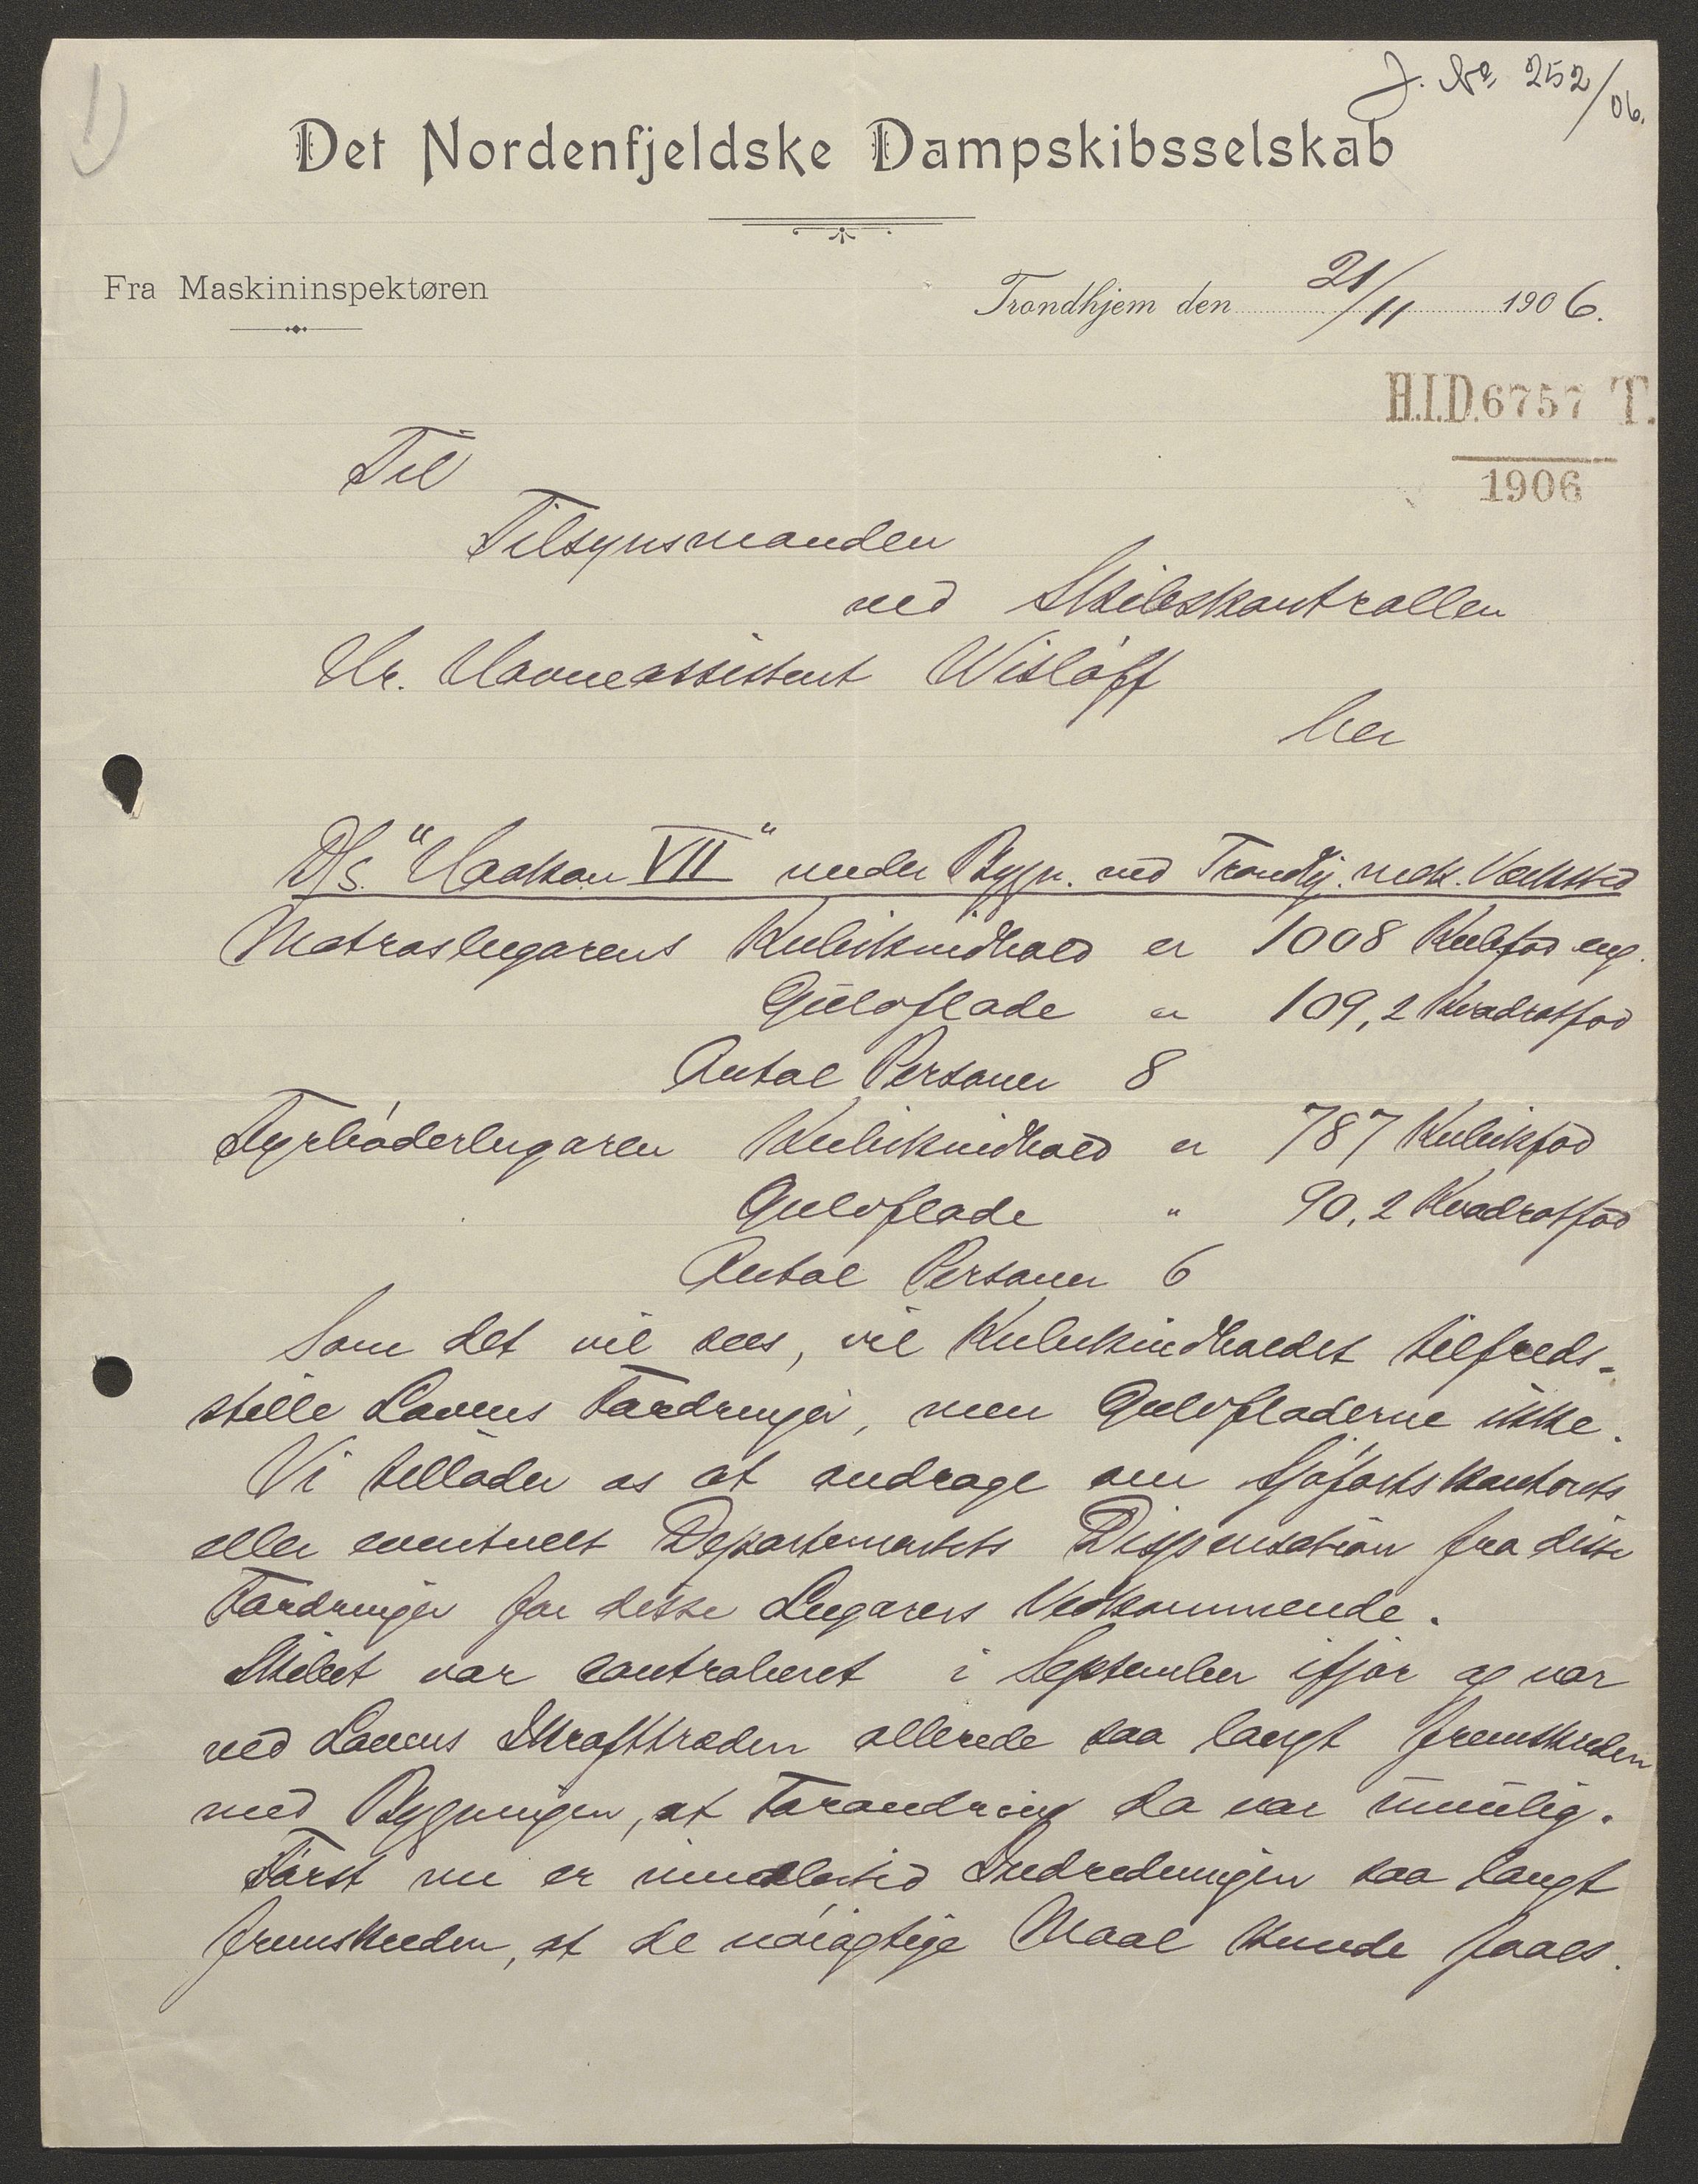 1)
J. No 252/06.
Det Nordenfjeldske Dampskibsselskab
Fra Maskininspektøren
Trondhjem den 21/11 1906.
H.I.D. 6757 T.
1906
Til
Tilsynsmanden
ved Skibskontrollen
Hr. Havneassistent Wisløff
her
D/S. "Haakon VII" under Bygn. ved Trondhj. mek. Værksted
Matroslugarens Kubikindhold er 1008 Kubfod eng.
Gulvflade er 109,2 Kvadratfod
Antal Personer 8
Fyrbøderlugaren Kubikindhold er 787 Kubikfod
Gulvflade " 90,2 Kvadratfod
Antal Personer 6
Som det vil sees, vil Kubikindholdet tilfreds-
stille Lovens Fordringer, men Gulvfladerne ikke.
Vi tillader os at andrage om Sjøfartskontorets
eller eventuelt Departementets Dispensation fra disse
Fordringer for disse Lugarers Vedkommende.
Skibet var contraheret i September ifjor og var
ved Lovens Ikrafttræden allerede saa langt fremskreden
med Bygningen, at Forandring da var umulig.
Først nu er imidlertid Indredningen saa langt
fremskreden, at de nøiagtige Maal kunde faaes.